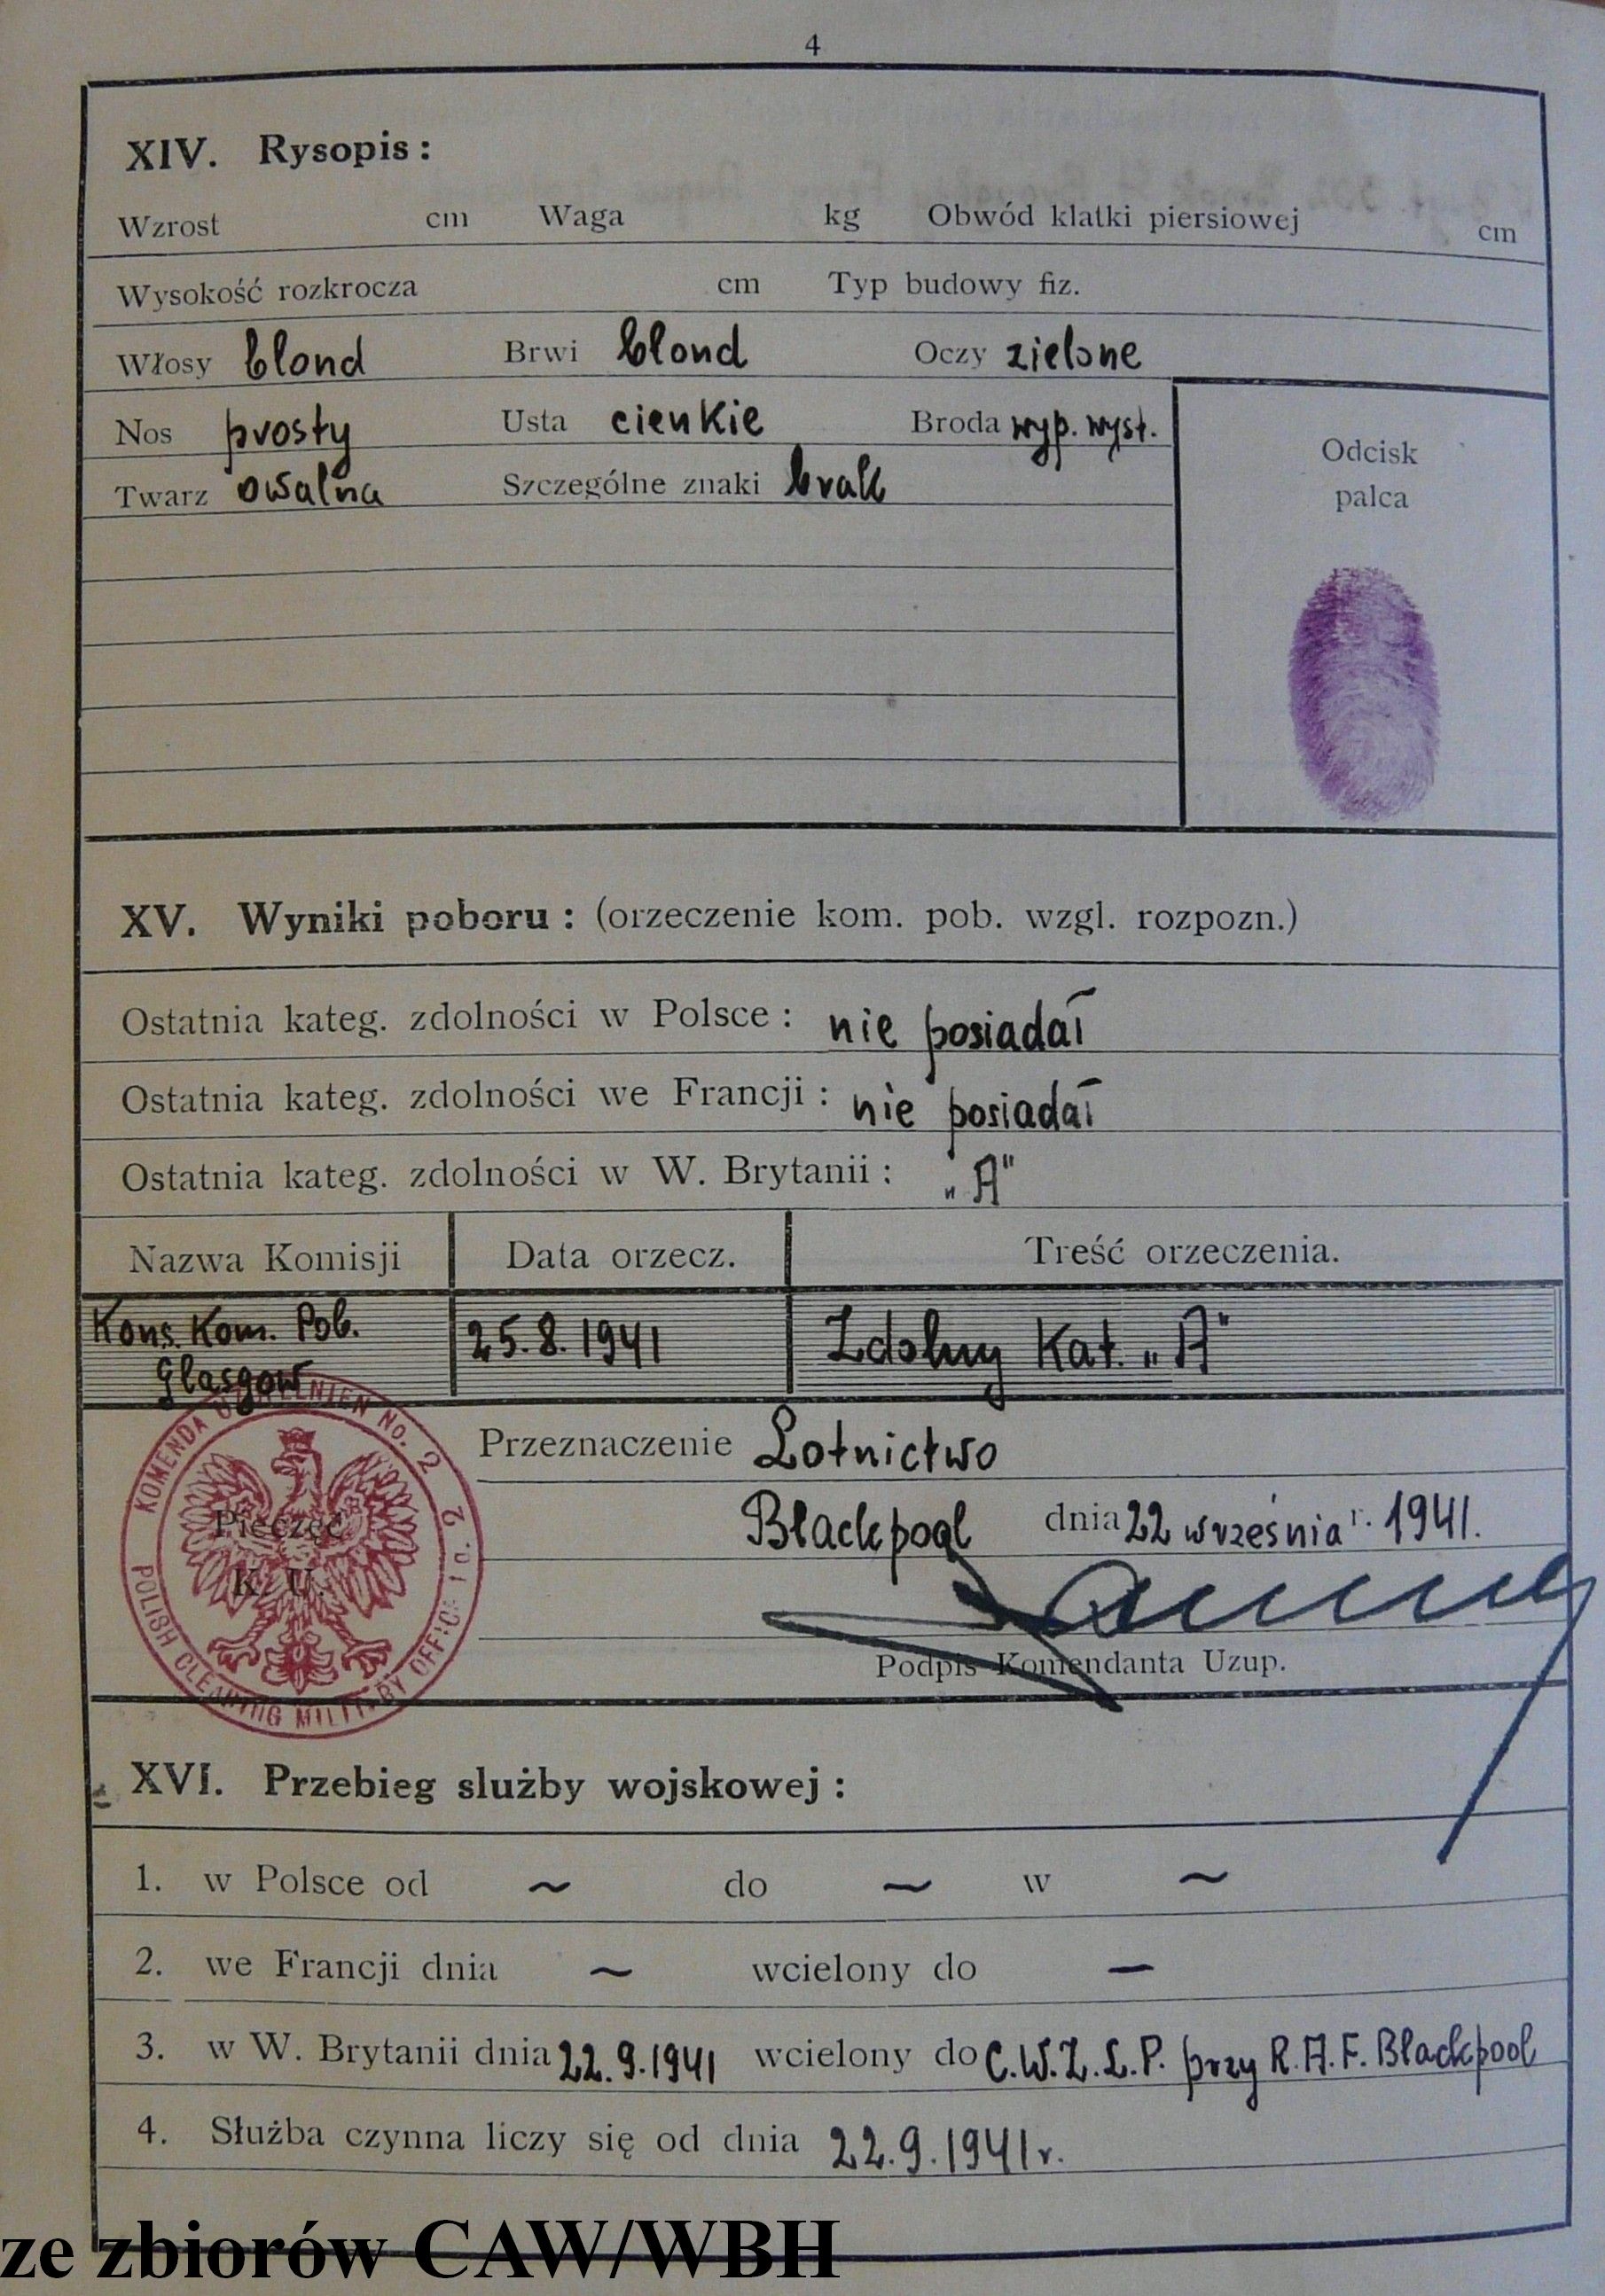 4
XIV. Rysopis:
Wzrost cm Waga kg Obwód klatki piersiowej cm
Wysokość rozkrocza cm Typ budowy fiz.
Włosy blond Brwi blond Oczy zielone
Nos prosty Usta cienkie Broda wyp. wyst.
Twarz owalna Szczególne znaki brak
Odcisk
palca
XV. Wyniki poboru: (orzeczenie kom. pob. wzgl. rozpozn.)
Ostatnia kateg. zdolności w Polsce: nie posiadał
Ostatnia kateg. zdolności we Francji: nie posiadał
Ostatnia kateg. zdolności w W. Brytanii: „A"
Nazwa Komisji Data orzecz. Treść orzeczenia.
Kons. Kom. Pob. 25.8.1941 Zdolny Kat. „A"
Glasgow
Przeznaczenie Lotnictwo
Blackpool dnia 22 września r. 1941.
Pieczęć
K. U.
KOMENDA UZUPEŁNIEN No. 2
POLISH CLEARING MILITARY OFFICE No. 2
Podpis Komendanta Uzup.
XVI. Przebieg służby wojskowej:
1. w Polsce od ~ do ~ w ~
2. we Francji dnia ~ wcielony do —
3. w W. Brytanii dnia 22.9.1941 wcielony do C.W.Z.L.P. przy R.A.F. Blackpool
4. Służba czynna liczy się od dnia 22.9.1941 r.
ze zbiorów CAW/WBH